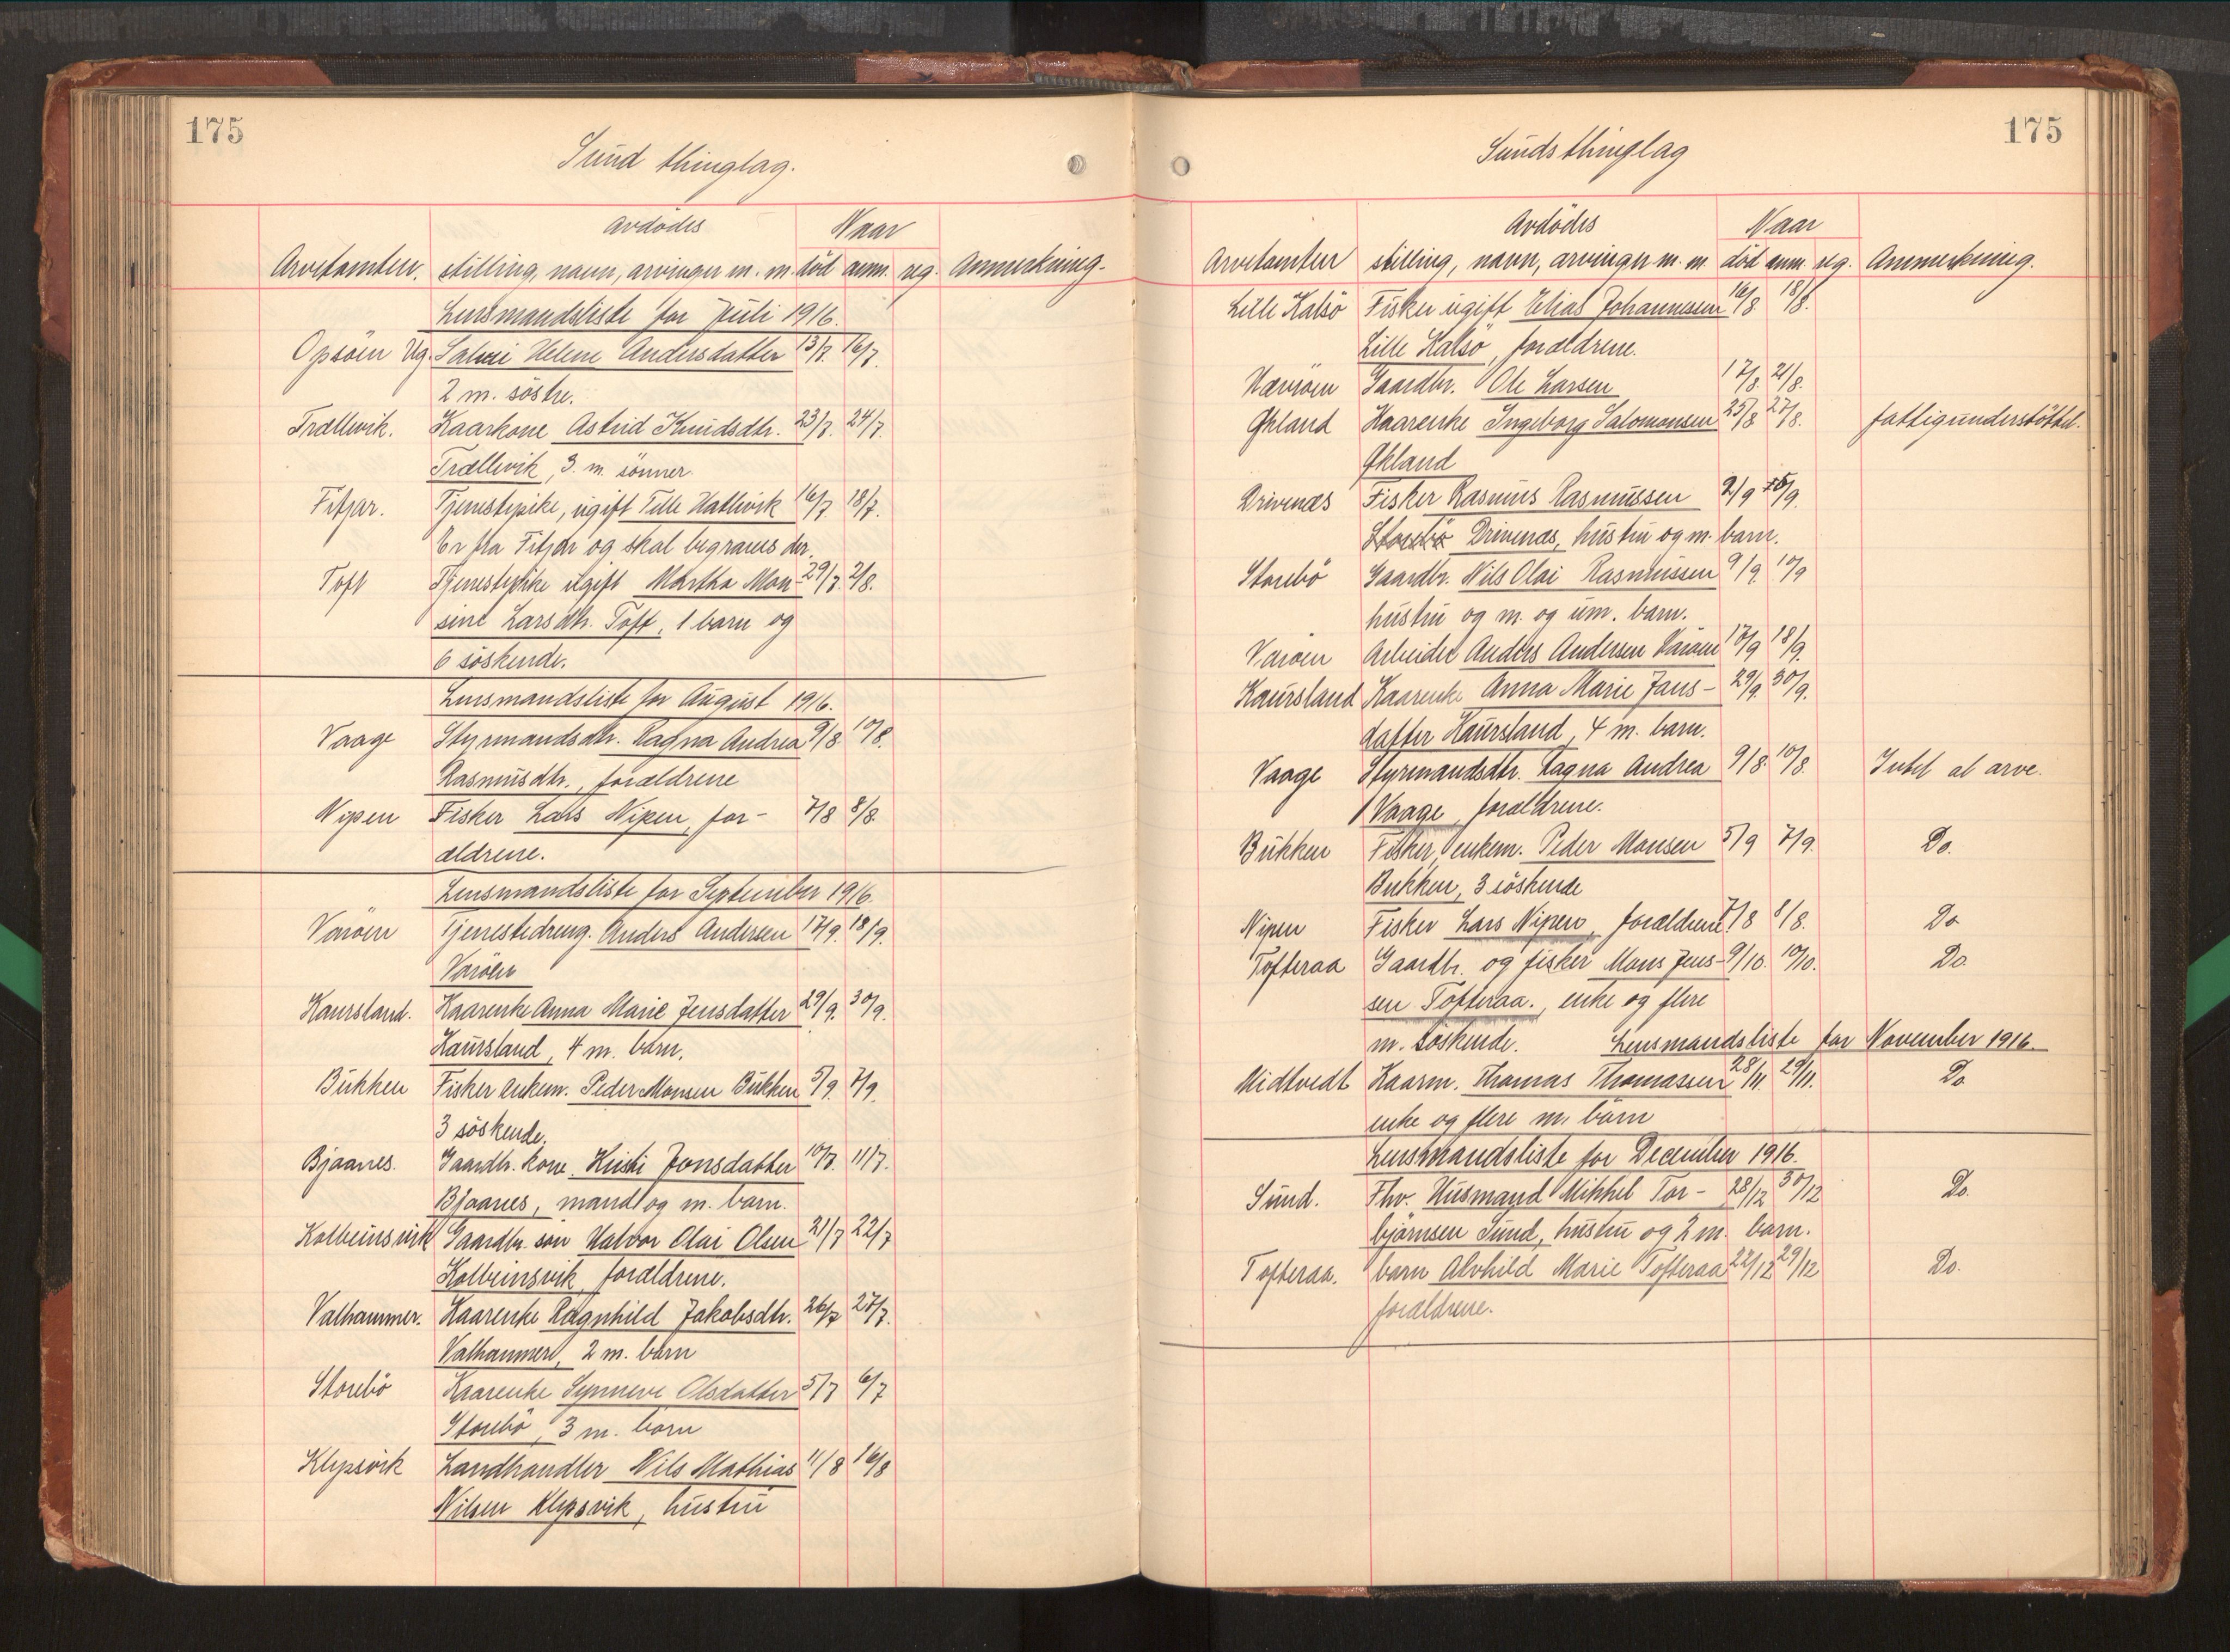 175
Sund thinglag.
Avdödes Naar
Arvetomten. stilling, navn, arvinger m. m. död anm. reg. Anmerkning.
Lensmandsliste for Juli 1916.
Opsöen Ug. Helene Andersdatter 13/7. 16/7.
2 m. söstre.
Trællevik. Kaarkone Astrid Knudsdtr. 23/7. 24/7.
Trællevik, 3. m. sönner.
Fitjar. Tjenestepike, ugift Tille Hatlevik 16/7 18/7.
Er fra Fitjar og skal begraves der.
Toft Tjenestepike ugift Martha Mon- 29/7. 2/8.
sine Larsdtr. Toft, 1 barn og
6 söskende.
Lensmandsliste for August 1916.
Vaage Styrmandsdtr. Ragna Andrea 9/8 10/8.
Rasmusdtr., forældrene
Nipen Fisker Lars Nipen, for- 7/8 8/8.
ældrene.
Lensmandsliste for September 1916.
Varöen Tjenestedreng. Anders Andersen 17/9. 18/9.
Varöen
Kaursland. Kaarenke Anna Marie Jensdatter 29/9. 30/9.
Kaursland, 4 m. barn.
Bukken Fisker enkem. Peder Monsen Bukken 5/9. 7/9.
3 söskende.
Bjaanes. Gaardbr. kone. Kristi Jonsdatter 10/7. 11/7.
Bjaanes, mand og m. barn.
Kolbeinsvik Gaardbr. sön Halvor Olai Olsen 21/7 22/7
Kolbeinsvik, forældrene.
Valhammer. Kaarenke Ragnhild Jakobsdtr. 26/7 27/7.
Valhammer, 2 m. barn
Storebö Kaarenke Synneve Olsdatter 5/7 6/7
Storebö, 3 m. barn
Klepsvik Landhandler Nils Mathias 11/8 16/8
Nilsen Klepsvik, hustru
175
Sunds thinglag
Avdödes Naar
Arvetomten stilling, navn, arvinger m. m. död anm reg. Anmerkning.
Lille Kalsö Fisker ugift Elias Johannessen 16/8. 18/8.
Lille Kalsö, forældrene.
Hevröen Gaardbr. Ole Larsen 17/8. 21/8.
Ökland Kaarenke Ingeborg Salomonsen 25/8 27/8. fattigunderstöttet.
Ökland
Drivenes Fisker Rasmus Rasmussen 2/9 5/9.
Storebö Drivenes, hustru og m. barn.
Storebö Gaardbr. Nils Olai Rasmussen 9/9. 10/9
hustru og m. og um. barn.
Varöen Arbeider Anders Andersen Varöen 17/9 18/9.
Kaursland Kaarenke Anna Marie Jans- 29/9. 30/9.
datter Kaursland, 4 m. barn.
Vaage Styrmandsdtr. Ragna Andrea 9/8. 10/8. Intet at arve.
Vaage, forældrene.
Bukken Fisker, enkem. Peder Monsen 5/9 7/9. Do.
Bukken, 3 söskende
Nipen Fisker Lars Nipen, forældrene 7/8 8/8. Do
Tofteraa Gaardbr. og fisker Mons Jens- 9/10. 10/10. Do.
sen Tofteraa., enke og flere
m. söskende. Lensmandsliste for November 1916
Midtvedt Kaarm. Thomas Thomassen 28/11. 29/11. Do
enke og flere m. barn
Lensmandsliste for December 1916.
Sund. Fhv. Husmand Mikkel Tor- 28/12 30/12 Do.
björnsen Sund, hustru og 2 m. barn.
Tofteraa. barn Alvhild Marie Tofteraa 22/12 29/12 Do.
forældrene.